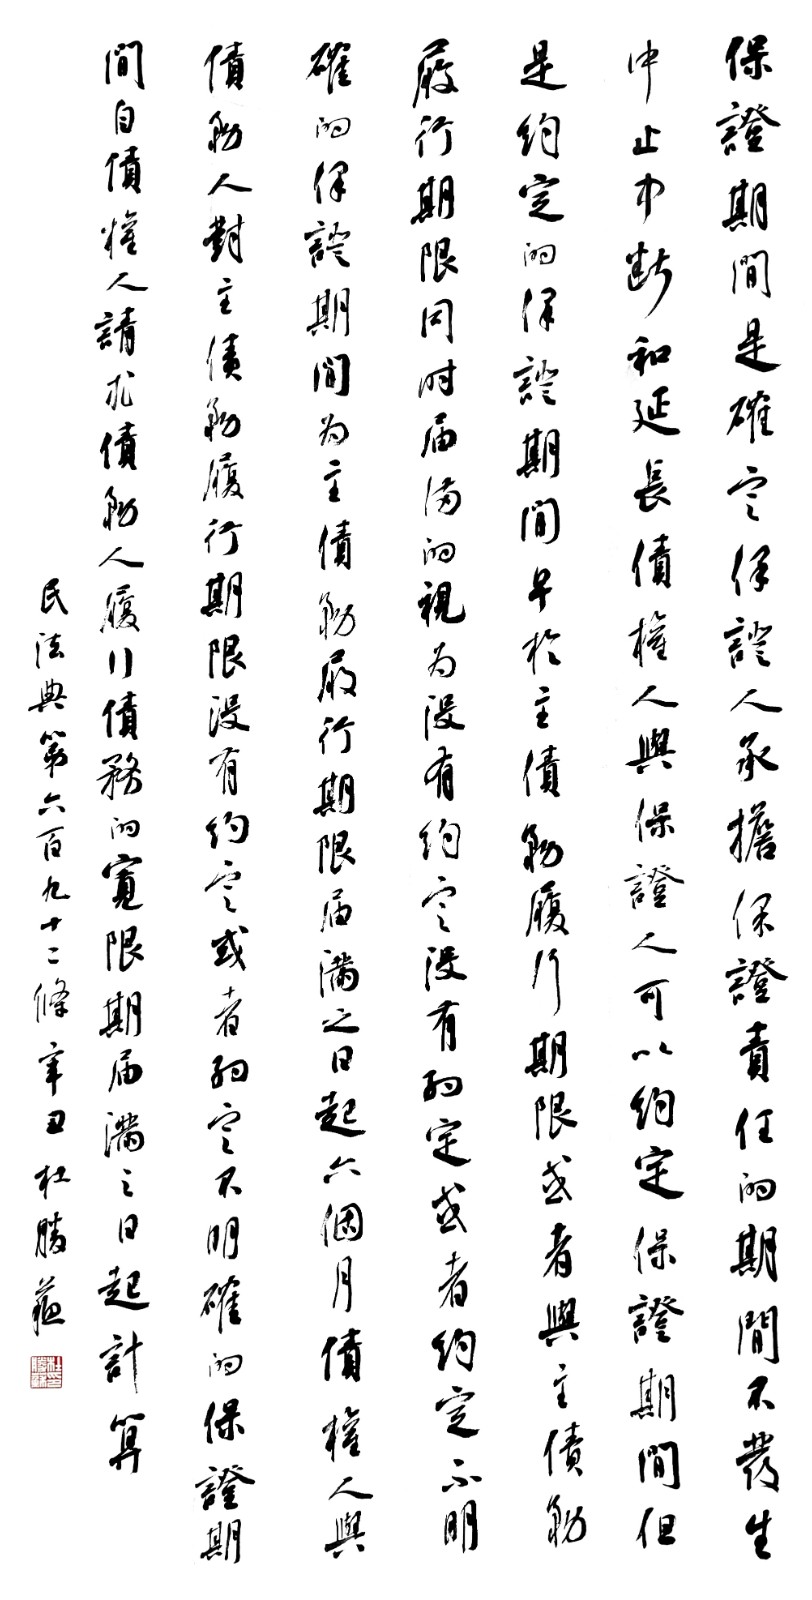 保證期間是確定保證人承擔保證責任的期間不發生
中止中斷和延長債權人與保證人可以約定保證期間但
是約定的保證期間早於主債務履行期限或者與主債務
履行期限同时届满的視为没有約定没有約定或者約定不明
確的保證期間为主債務履行期限届滿之日起六個月債權人與
債務人對主債務履行期限沒有約定或者約定不明確的保證期
間自債權人請求債務人履行債務的寬限期届滿之日起計算
民法典第六百九十二條辛丑杜勝蘓